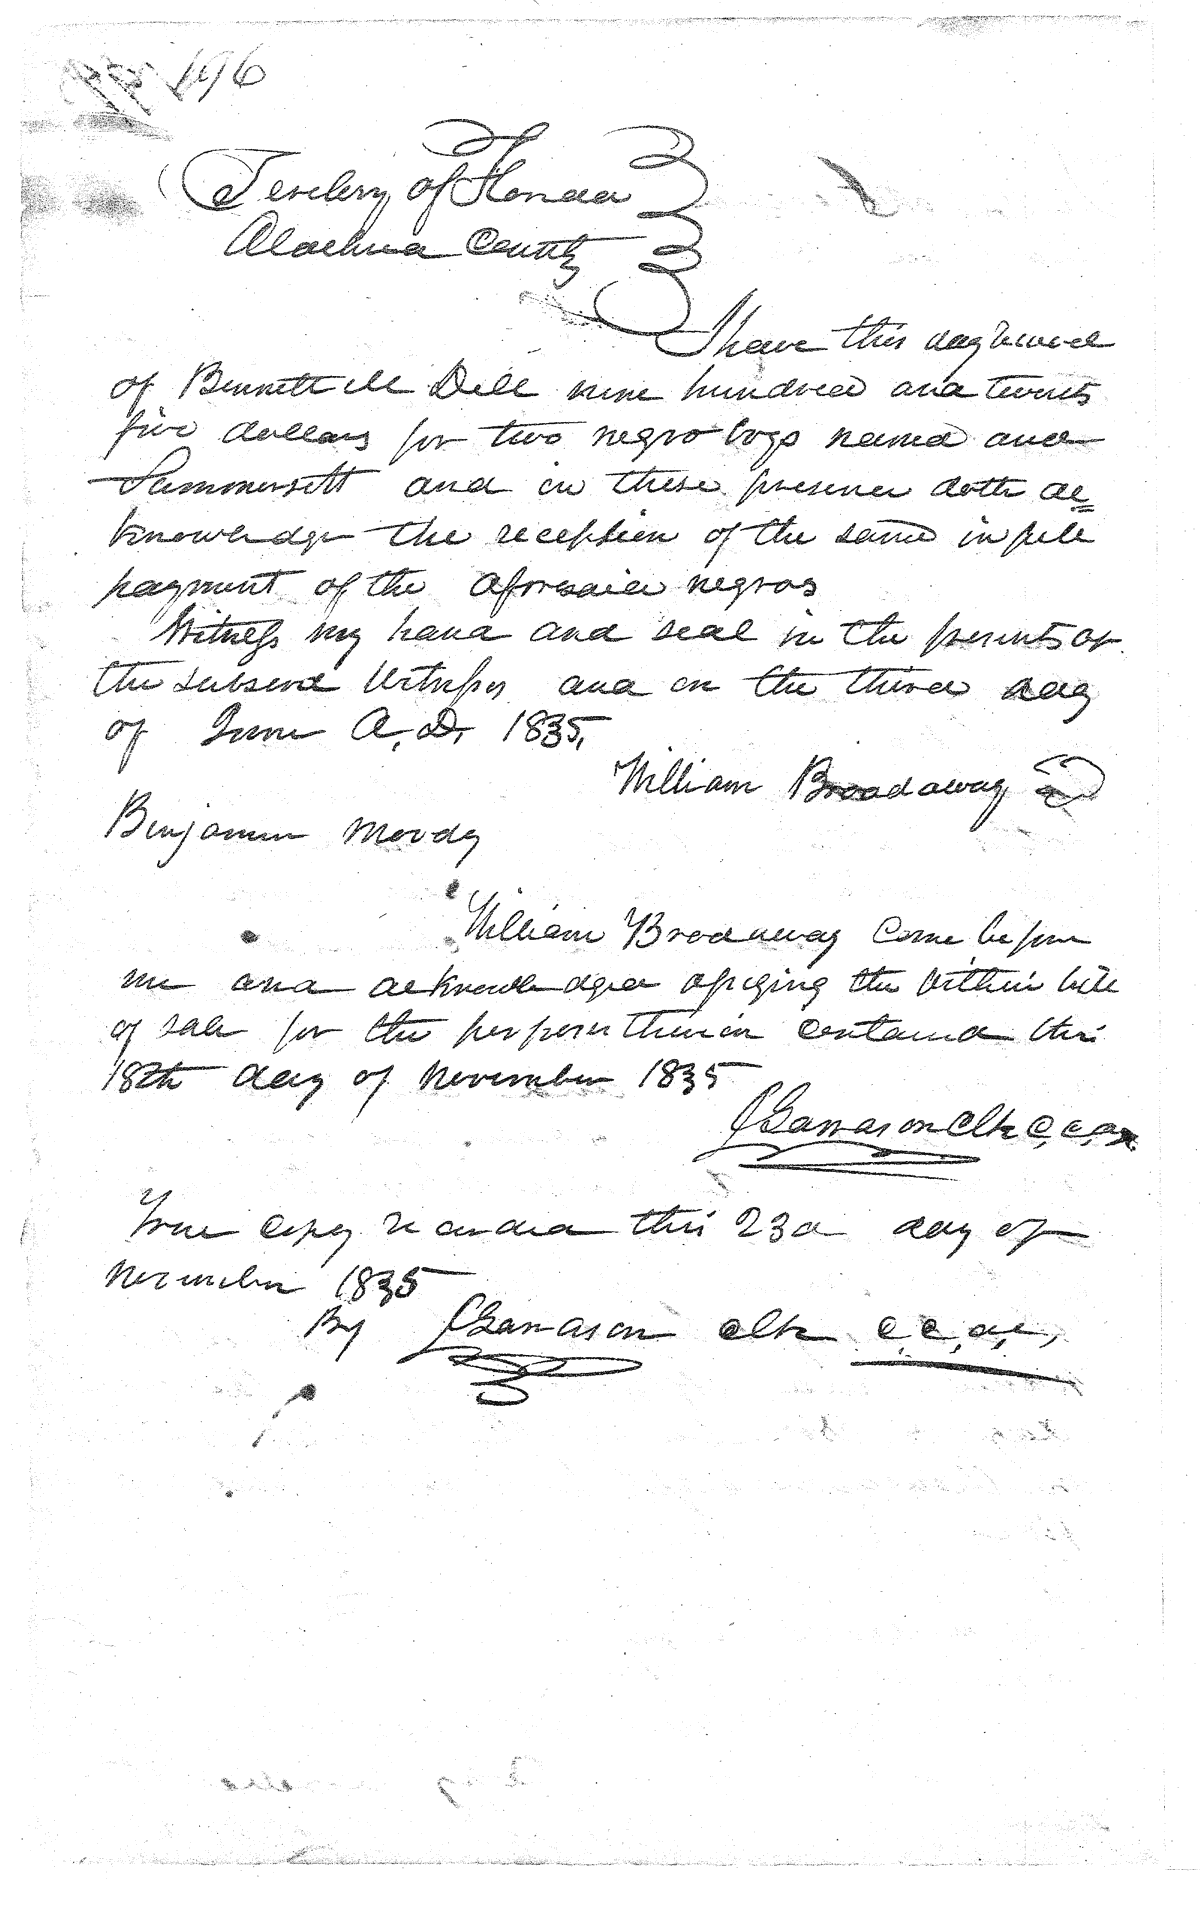 196
Teritory of Florida
Alachua County
I have this day received
of Bennett M Dell nine hundred and twenty
five dollars for two negro boys named and
Summersett and in these presence doth ac=
knowledge the reception of the same in full
payment of the aforesaid negros
Witness my hand and seal in the presents of
the subscrd Witnesses and on the third day
of June A.D. 1835.
William Broadaway
Benjamin Moody
William Broadaway Come before
me and acknowledged the Within bill
of sale for the purposes therein contained this
18th day of November 1835
Garrason Clk C.C.A.C.
True Copy recorded this 23d day of
November 1835
By Garrason Clk C.C.A.C.